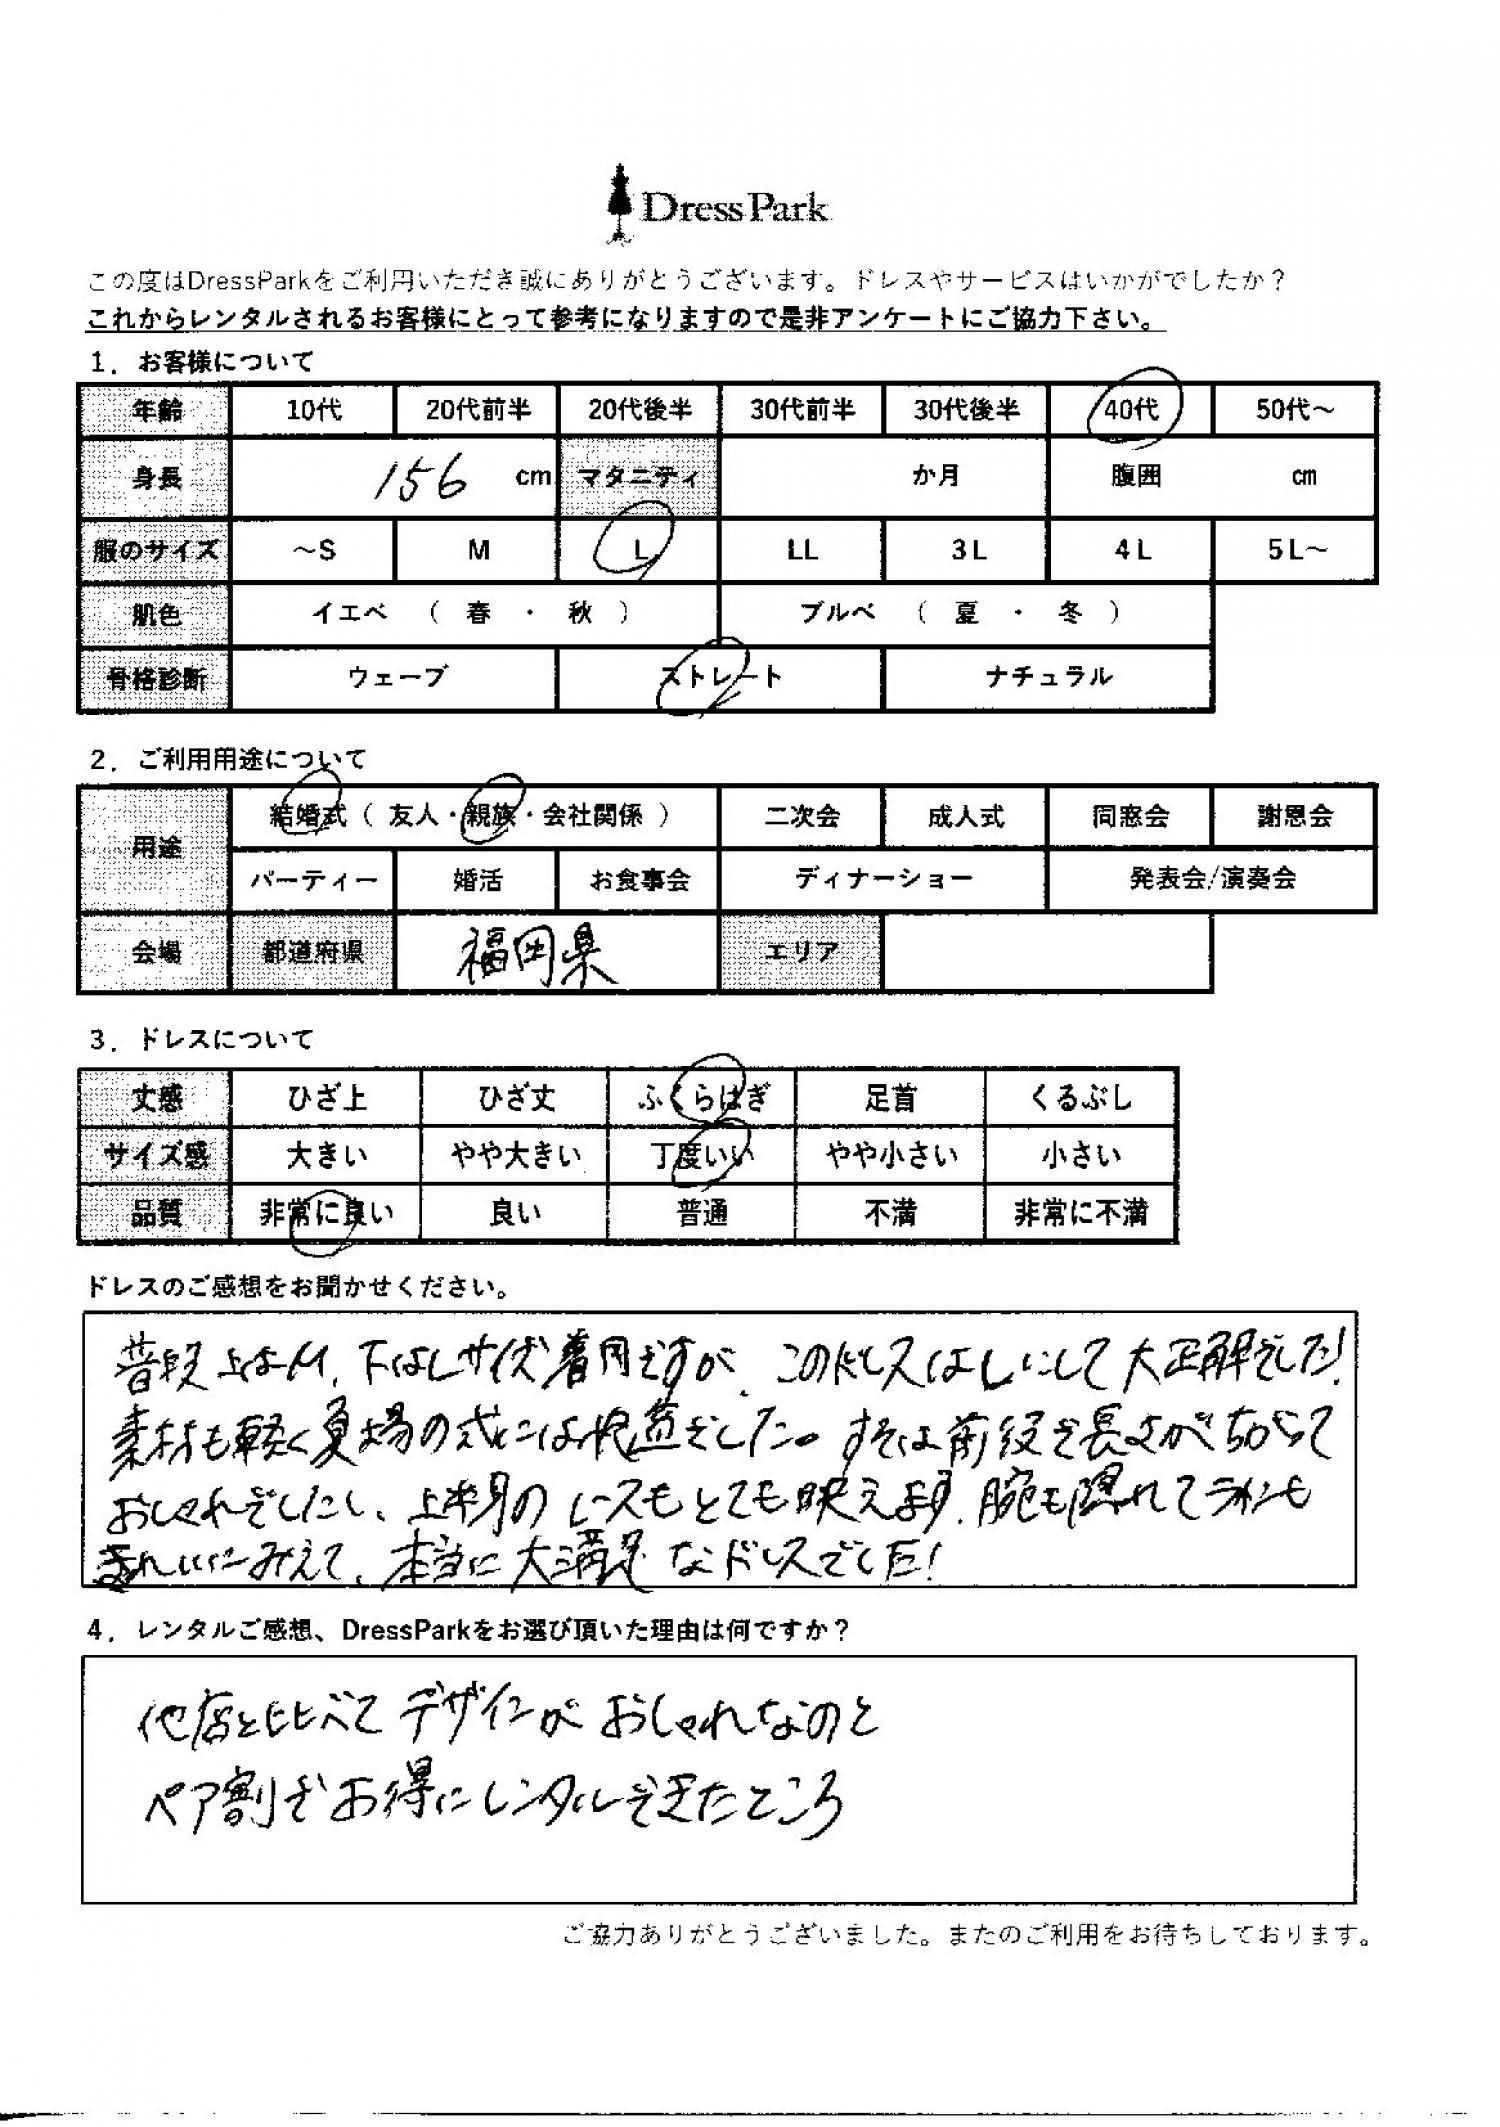 DressPark
この度はDressParkをご利用いただき誠にありがとうございます。ドレスやサービスはいかがでしたか？
これからレンタルされるお客様にとって参考になりますので是非アンケートにご協力下さい。
1．お客様について
年齢 10代 20代前半 20代後半 30代前半 30代後半 40代 50代～
身長 156 cm マタニティ か月 腹囲 cm
服のサイズ ～S M L LL 3L 4L 5L～
肌色 イエベ （ 春 ・ 秋 ） ブルベ （ 夏 ・ 冬 ）
骨格診断 ウェーブ ストレート ナチュラル
2．ご利用用途について
用途 結婚式（ 友人・親族・会社関係 ） 二次会 成人式 同窓会 謝恩会
パーティー 婚活 お食事会 ディナーショー 発表会/演奏会
会場 都道府県 福岡県 エリア
3．ドレスについて
丈感 ひざ上 ひざ丈 ふくらはぎ 足首 くるぶし
サイズ感 大きい やや大きい 丁度いい やや小さい 小さい
品質 非常に良い 良い 普通 不満 非常に不満
ドレスのご感想をお聞かせください。
普段上はM、下はLサイズ着用ですが、このドレスはLにして大正解でした！
素材も軽く夏場の式には快適でした。すそは前後で長さがちがって
おしゃれでしたし、上半身のレースもとても映えます。腕も隠れてラインも
きれいにみえて、本当に大満足なドレスでした！
4．レンタルご感想、DressParkをお選び頂いた理由は何ですか？
他店と比べてデザインがおしゃれなのと
ペア割でお得にレンタルできたところ
ご協力ありがとうございました。またのご利用をお待ちしております。